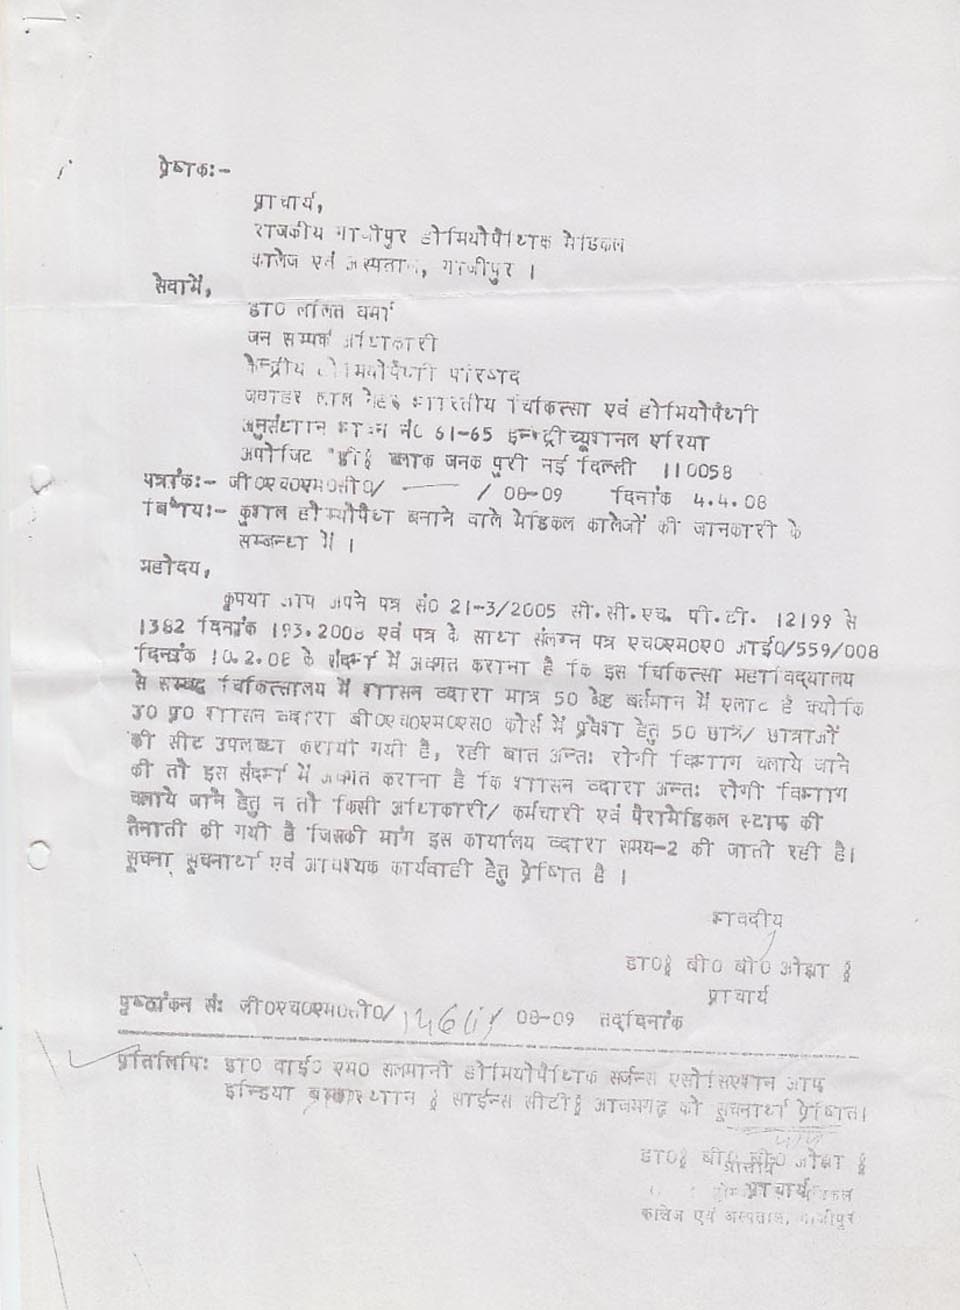 प्रेषक:-
प्राचार्य,
राजकीय गाजीपुर होमियोपैथिक मेडिकल
कालेज एवं अस्पताल, गाजीपुर ।
सेवामें,
डा0 ललित वर्मा
जन सम्पर्क अधिकारी
केन्द्रीय होमियोपैथी परिषद
जवाहर लाल नेहरू भारतीय चिकित्सा एवं होमियोपैथी
अनुसंधान भवन नं0 61-65 इन्स्टीच्यूशनल एरिया
अपोजिट डी ब्लाक जनक पुरी नई दिल्ली 110058
पत्रांक:- जी0एच0एम0सी0/ — / 08-09 दिनांक 4.4.08
विषय:- कुशल होम्योपैथ बनाने वाले मेडिकल कालेजों की जानकारी के
सम्बन्ध में ।
महोदय,
कृपया आप अपने पत्र सं0 21-3/2005 सी.सी.एच. पी.टी. 12199 से
1382 दिनांक 193.2008 एवं पत्र के साथ संलग्न पत्र एच0एम0ए0 आई0/559/008
दिनांक 10.2.08 के संदर्भ में अवगत कराना है कि इस चिकित्सा महाविद्यालय
से सम्बद्ध चिकित्सालय में शासन व्दारा मात्र 50 बेड वर्तमान में एलाट है क्योकि
उ0 प्र0 शासन व्दारा बी0एच0एम0एस0 कोर्स में प्रवेश हेतु 50 छात्र/ छात्राओं
की सीट उपलब्ध करायी गयी है, रही बात अन्त: रोगी विभाग चलाये जाने
की तो इस संदर्भ में अवगत कराना है कि शासन व्दारा अन्त: रोगी विभाग
चलाये जाने हेतु न तो किसी अधिकारी/ कर्मचारी एवं पैरामेडिकल स्टाफ की
तैनाती की गयी है जिसकी मांग इस कार्यालय व्दारा समय-2 की जाती रही है।
सूचना सूचनार्थ एवं आवश्यक कार्यवाही हेतु प्रेषित है ।
भवदीय
डा0 बी0 बी0 ओझा
प्राचार्य
पृष्ठांकन सं: जी0एच0एम0सी0/ / 08-09 तद्दिनांक
प्रतिलिपि: डा0 वाई0 एम0 सलमानी होमियोपैथिक सर्जन्स एसोसिएशन आफ
इन्डिया साईन्स सीटी आजमगढ़ को सूचनार्थ प्रेषित।
डा0 बी0 बी0 ओझा
प्राचार्य
कालेज एवं अस्पताल, गाजीपुर